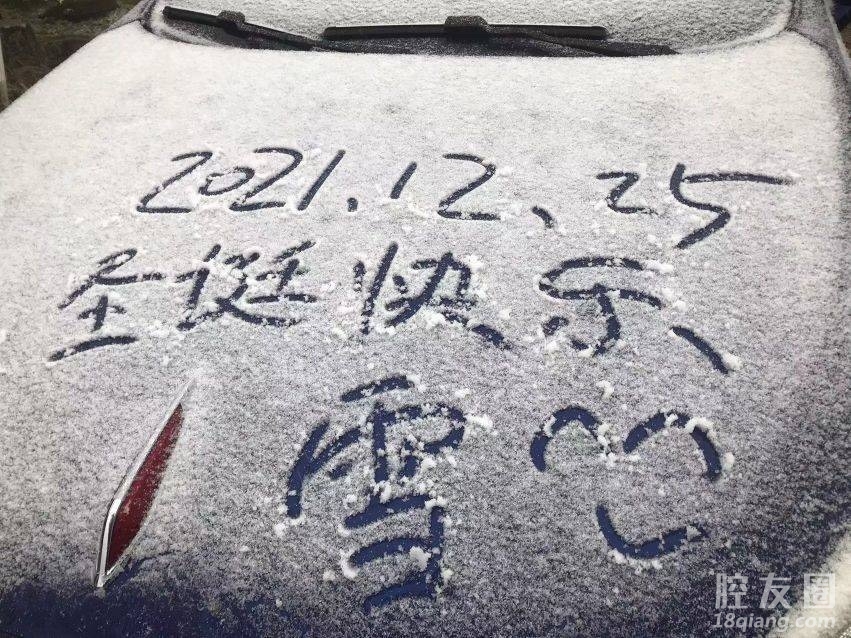 2021.12.25
圣诞快乐
雪
腔友圈
18qiang.com